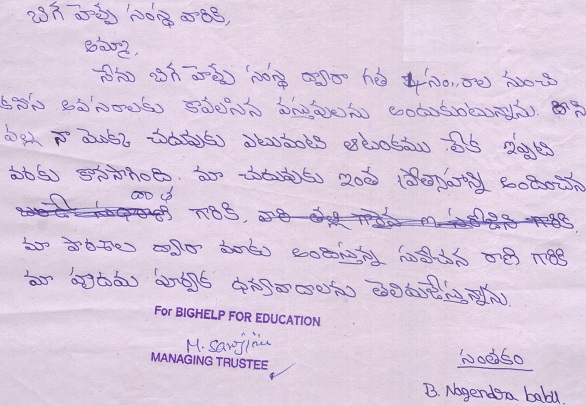 బిగ్ హెల్ప్ సంస్థ వారికి,
అమ్మా,
నేను బిగ హెల్ప్ సంస్థ ద్వారా గత 4సం..రాల నుంచి
కనీస అవసరాలకు కావలసిన వస్తువులను అందుకుంటున్నాను. దాని
వల్ల నా యొక్క చదువుకు ఎటువంటి ఆటంకము లేక ఇప్పటి
వరకు కొనసాగింది. మా చదువుకు ఇంత ప్రోత్సాహాన్ని అందించిన
రాధ
గారికి,
మా పాఠశాల ద్వారా మాకు అందిస్తున్న సులోచన రాణి గారికి
మా హృదయ పూర్వక ధన్యవాదాలను తెలియజేస్తున్నాను.
For BIGHELP FOR EDUCATION
M. Sarojini
MANAGING TRUSTEE
సంతకం
B. Nagendra babu.